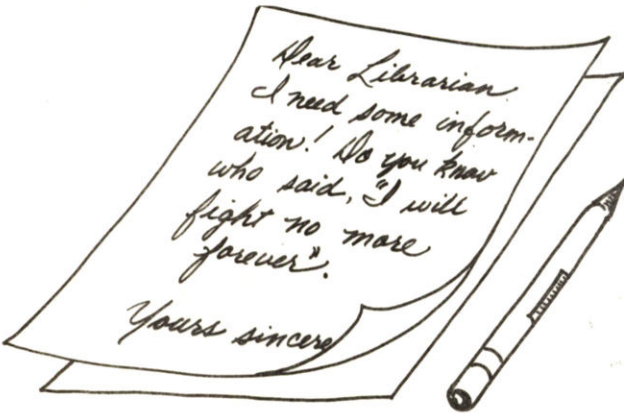 Dear Librarian
I need some inform-
ation! Do you know
who said, "I will
fight no more
forever".
Yours sincere